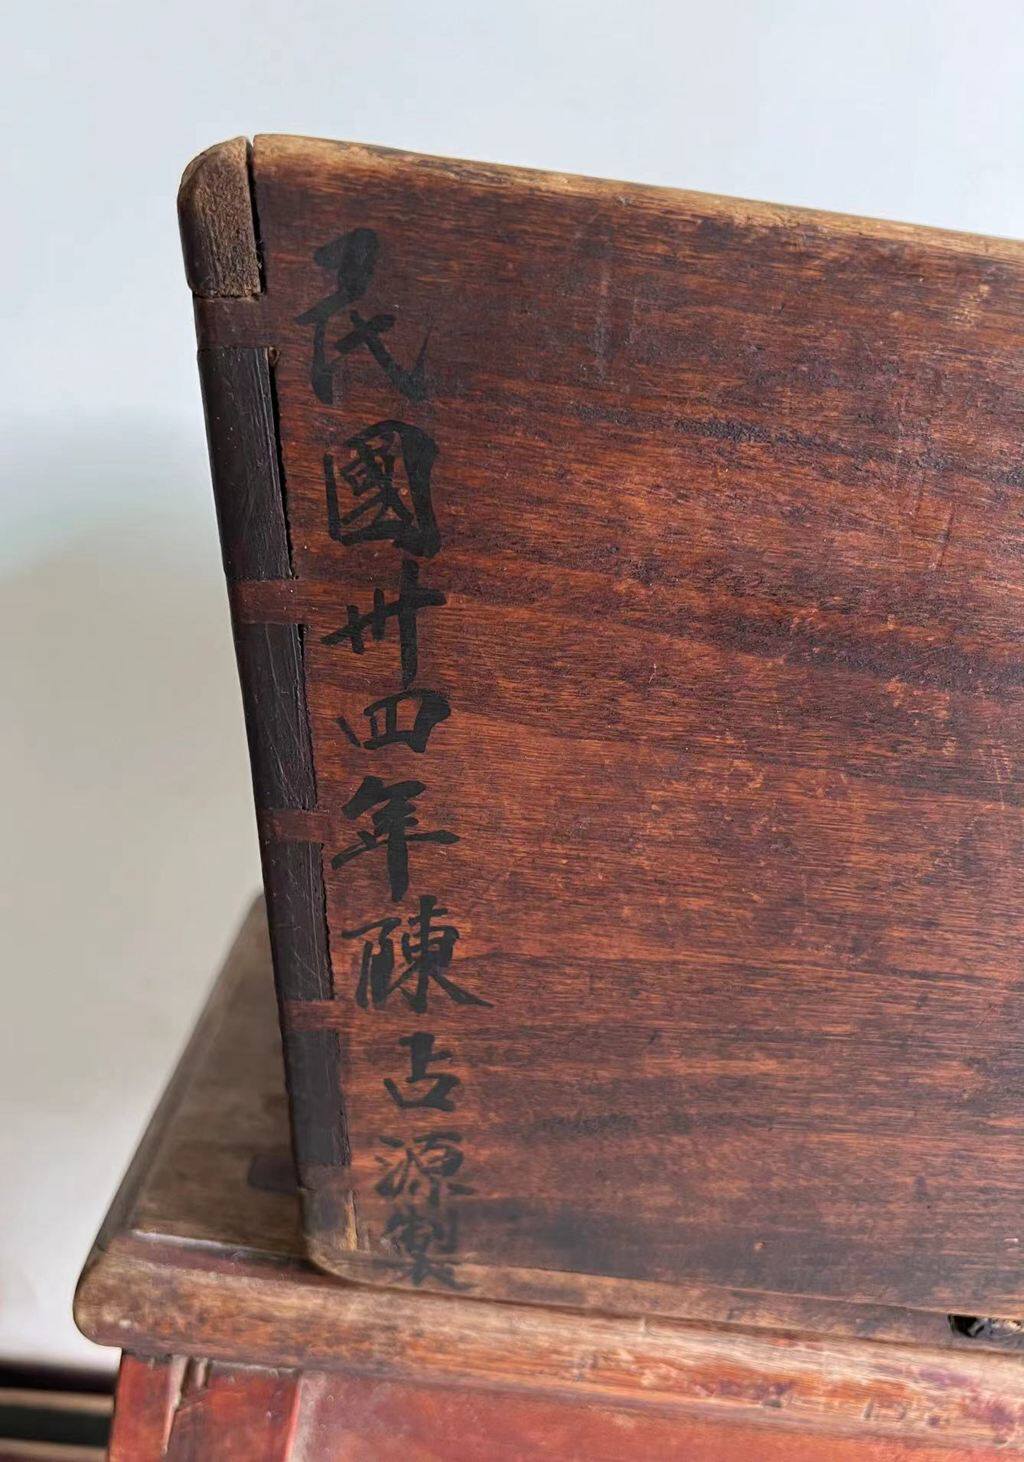 民國卅四年陳古源製